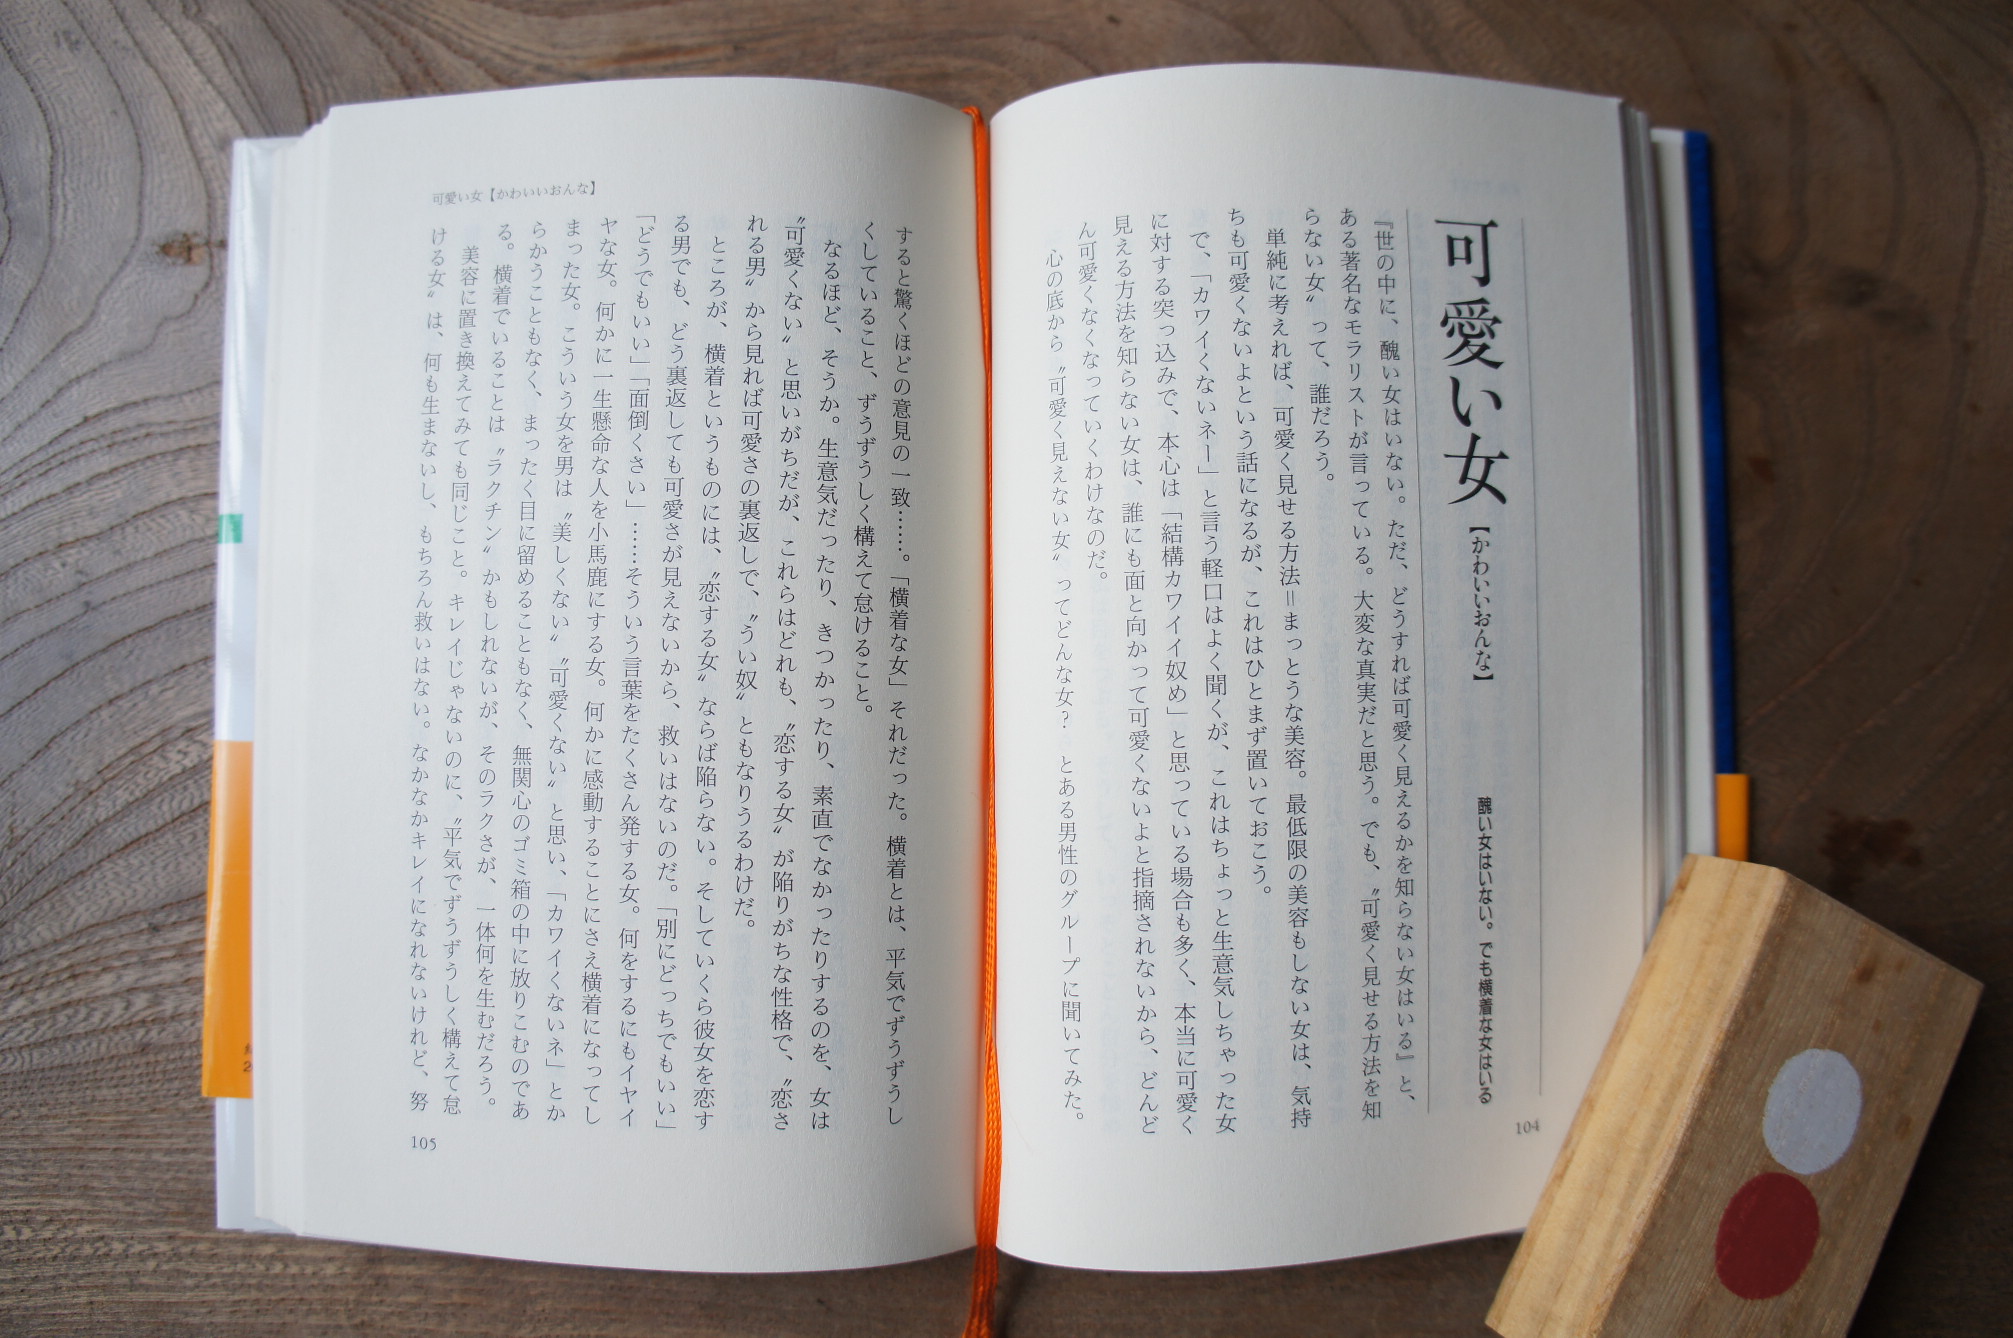 可愛い女【かわいいおんな】
醜い女はいない。でも横着な女はいる
『世の中に、醜い女はいない。ただ、どうすれば可愛く見えるかを知らない女はいる』と、
ある著名なモラリストが言っている。大変な真実だと思う。でも、〝可愛く見せる方法を知
らない女〟って、誰だろう。
単純に考えれば、可愛く見せる方法＝まっとうな美容。最低限の美容もしない女は、気持
ちも可愛くないよという話になるが、これはひとまず置いておこう。
で、「カワイくないネー」と言う軽口はよく聞くが、これはちょっと生意気しちゃった女
に対する突っ込みで、本心は「結構カワイイ奴め」と思っている場合も多く、本当に可愛く
見える方法を知らない女は、誰にも面と向かって可愛くないよと指摘されないから、どんど
ん可愛くなくなっていくわけなのだ。
心の底から〝可愛く見えない女〟ってどんな女？　とある男性のグループに聞いてみた。
104
可愛い女【かわいいおんな】
すると驚くほどの意見の一致……。「横着な女」それだった。横着とは、平気でずうずうし
くしていること、ずうずうしく構えて怠けること。
なるほど、そうか。生意気だったり、きつかったり、素直でなかったりするのを、女は
〝可愛くない〟と思いがちだが、これらはどれも、〝恋する女〟が陥りがちな性格で、〝恋さ
れる男〟から見れば可愛さの裏返しで、〝うい奴〟ともなりうるわけだ。
ところが、横着というものには、〝恋する女〟ならば陥らない。そしていくら彼女を恋す
る男でも、どう裏返しても可愛さが見えないから、救いはないのだ。「別にどっちでもいい」
「どうでもいい」「面倒くさい」……そういう言葉をたくさん発する女。何をするにもイヤイ
ヤな女。何かに一生懸命な人を小馬鹿にする女。何かに感動することにさえ横着になってし
まった女。こういう女を男は〝美しくない〟〝可愛くない〟と思い、「カワイくないネ」とか
らかうこともなく、まったく目に留めることもなく、無関心のゴミ箱の中に放りこむのであ
る。横着でいることは〝ラクチン〟かもしれないが、そのラクさが、一体何を生むだろう。
美容に置き換えてみても同じこと。キレイじゃないのに、〝平気でずうずうしく構えて怠
ける女〟は、何も生まないし、もちろん救いはない。なかなかキレイになれないけれど、努
105